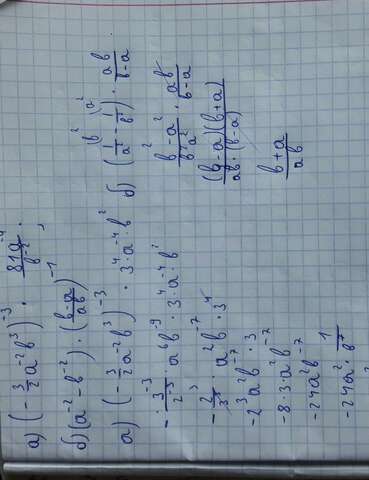 а) (-3/2 a⁻²b³)⁻³ · 81a⁻⁴/b⁻²;
б) (a⁻² - b⁻²) · (b-a/ab)⁻¹
а) (-3/2 a⁻²b³)⁻³ · 3⁴a⁻⁴·b²
- 3⁻³/2⁻³ · a⁶b⁻⁹ · 3⁴a⁻⁴·b²
a²b⁻⁷ · 3⁴
-2³a²b⁻⁷ · 3
-8·3·a²b⁻⁷
-24a²b⁻⁷
-24a² 1/b⁷
б) (1/a² - 1/b²) · ab/b-a
b²-a²/b²a² · ab/b-a
(b-a)(b+a)/ab·(b-a)
b+a/ab